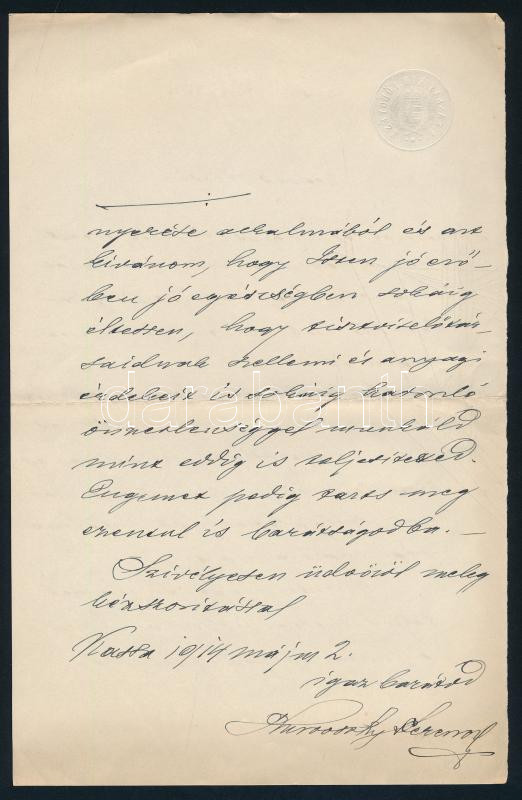 nyerése alkalmából és azt
kivánom, hogy Isten jó erő-
ben jó egészségben sokáig
éltessen, hogy tisztviselőtár-
saidnak szellemi és anyagi
érdekeit is sokáig hasonló
önzetlenséggel munkáld
mint eddig is teljesitetted.
Engemet pedig tarts meg
ezentul is barátságodba. —
Szivélyesen üdvözöl meleg
kézszoritással
Kassa 1914 május 2.
igaz barátod
Ferencz
darabanth